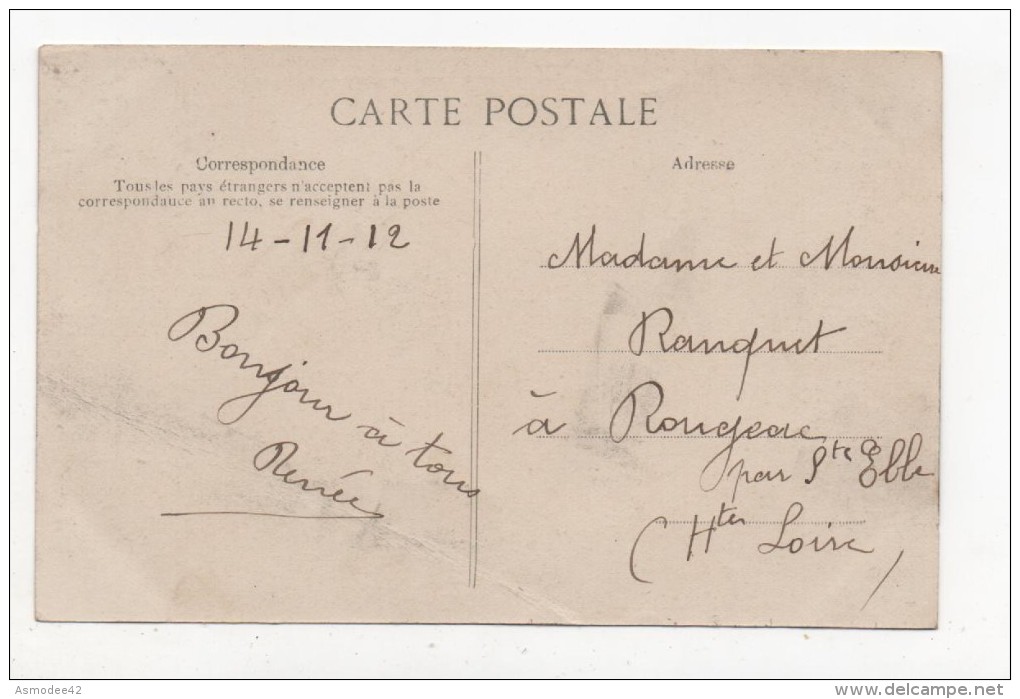 CARTE POSTALE
Correspondance
Tous les pays étrangers n'acceptent pas la
correspondance au recto, se renseigner à la poste
14-11-12
Bonjour à tous
Renée
Adresse
Madame et Monsieur
Ranquet
à Rougeac
par Ste Eble
(Hte Loire)
Asmodee42
www.delcampe.net